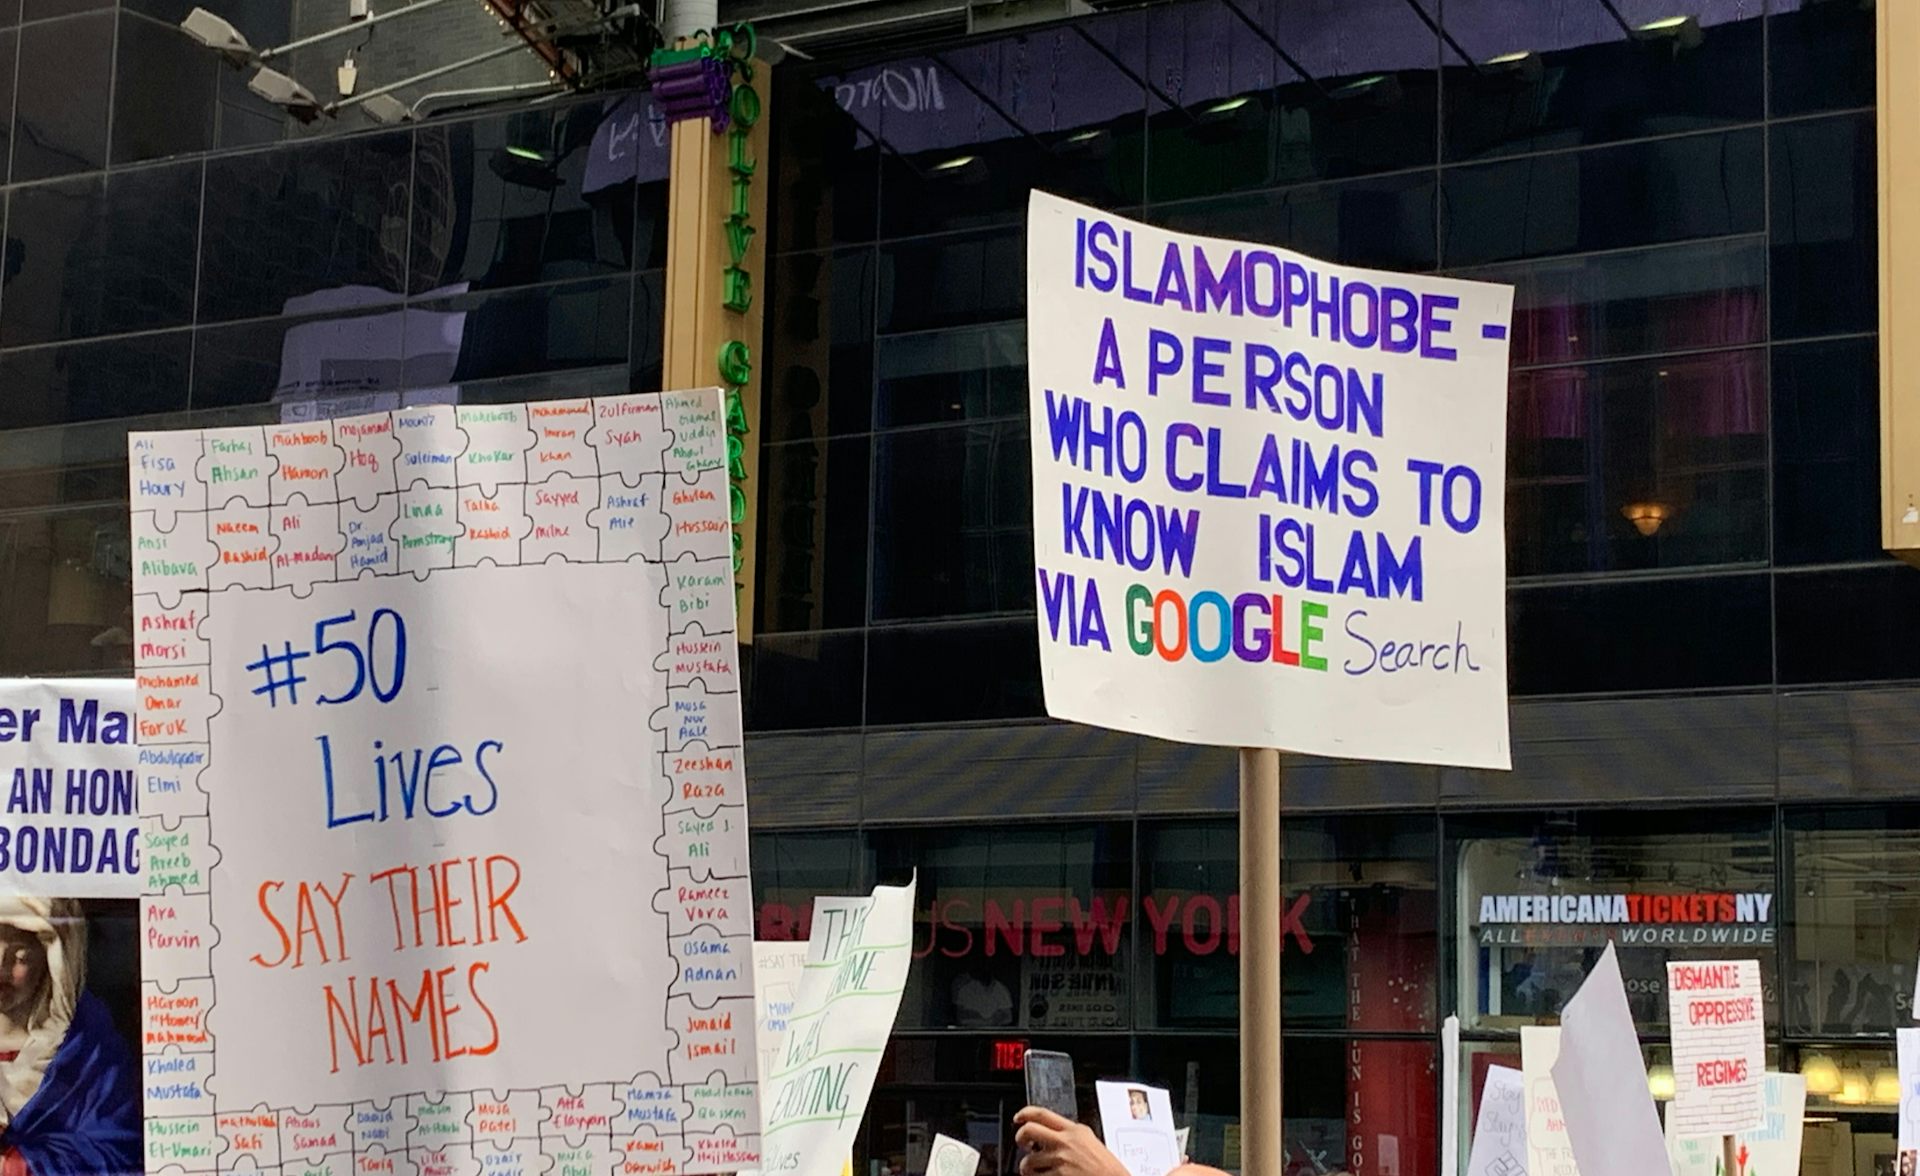 OLIVE GARDEN
ISLAMOPHOBE -
A PERSON
WHO CLAIMS TO
KNOW ISLAM
VIA GOOGLE Search
#50
Lives
SAY THEIR
NAMES
Ali
Eisa
Houry
Farhaj
Ahsan
Mahboob
Haroon
Mojammel
Hoq
Mounir
Suleiman
Maheboob
Khokar
Mohammad
Imran
Khan
Zulfirman
Syah
Ahmed
Gamal
Uddin
Abdul
Ghany
Ansi
Alibava
Naeem
Rashid
Ali
Al-Madani
Dr.
Amjad
Hamid
Linda
Armstrong
Talha
Rashid
Sayyad
Milne
Ashraf
Alie
Ghulam
Hussain
Karam
Bibi
Ashraf
Morsi
Hussein
Mustafa
Mohamed
Omar
Faruk
Musa
Nur
Aale
Abdulqadir
Elmi
Zeeshan
Raza
Sayed
Areeb
Ahmed
Sayed J.
Ali
Ara
Parvin
Rameez
Vora
Osama
Adnan
Haroon
"Homey"
Mahmood
Junaid
Ismail
Khaled
Mustafa
Hussein
El-Umari
Mathullah
Safi
Abdus
Samad
Daoud
Nabi
Musa
Patel
Atta
Elayyan
Hamza
Mustafa
Abdullah
Qassem
Tariq
Lilik
Ozair
Kadir
Mucad
Abdi
Kamel
Darwish
Khaled
Hajj Hassan
er Ma
AN HON
BONDAG
THE
CRIME
WAS
EXISTING
lives
NEW YORK
AMERICANATICKETSNY
ALL EVENTS WORLDWIDE
DISMANTLE
OPPRESSIVE
REGIMES